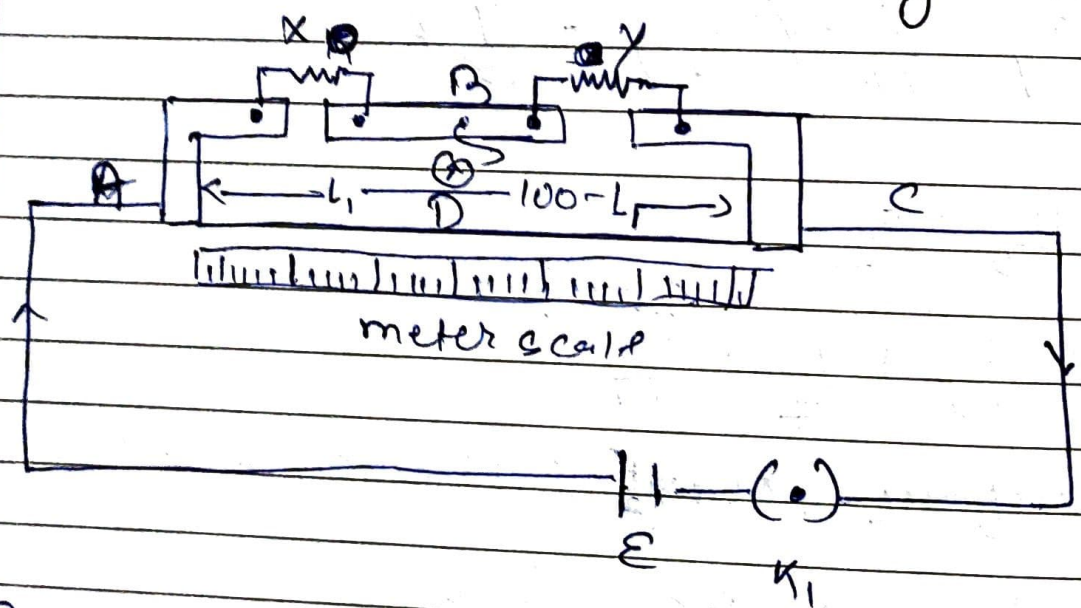 X Y
B
A L₁ 100-L₁ C
D
meter scale
ε K₁